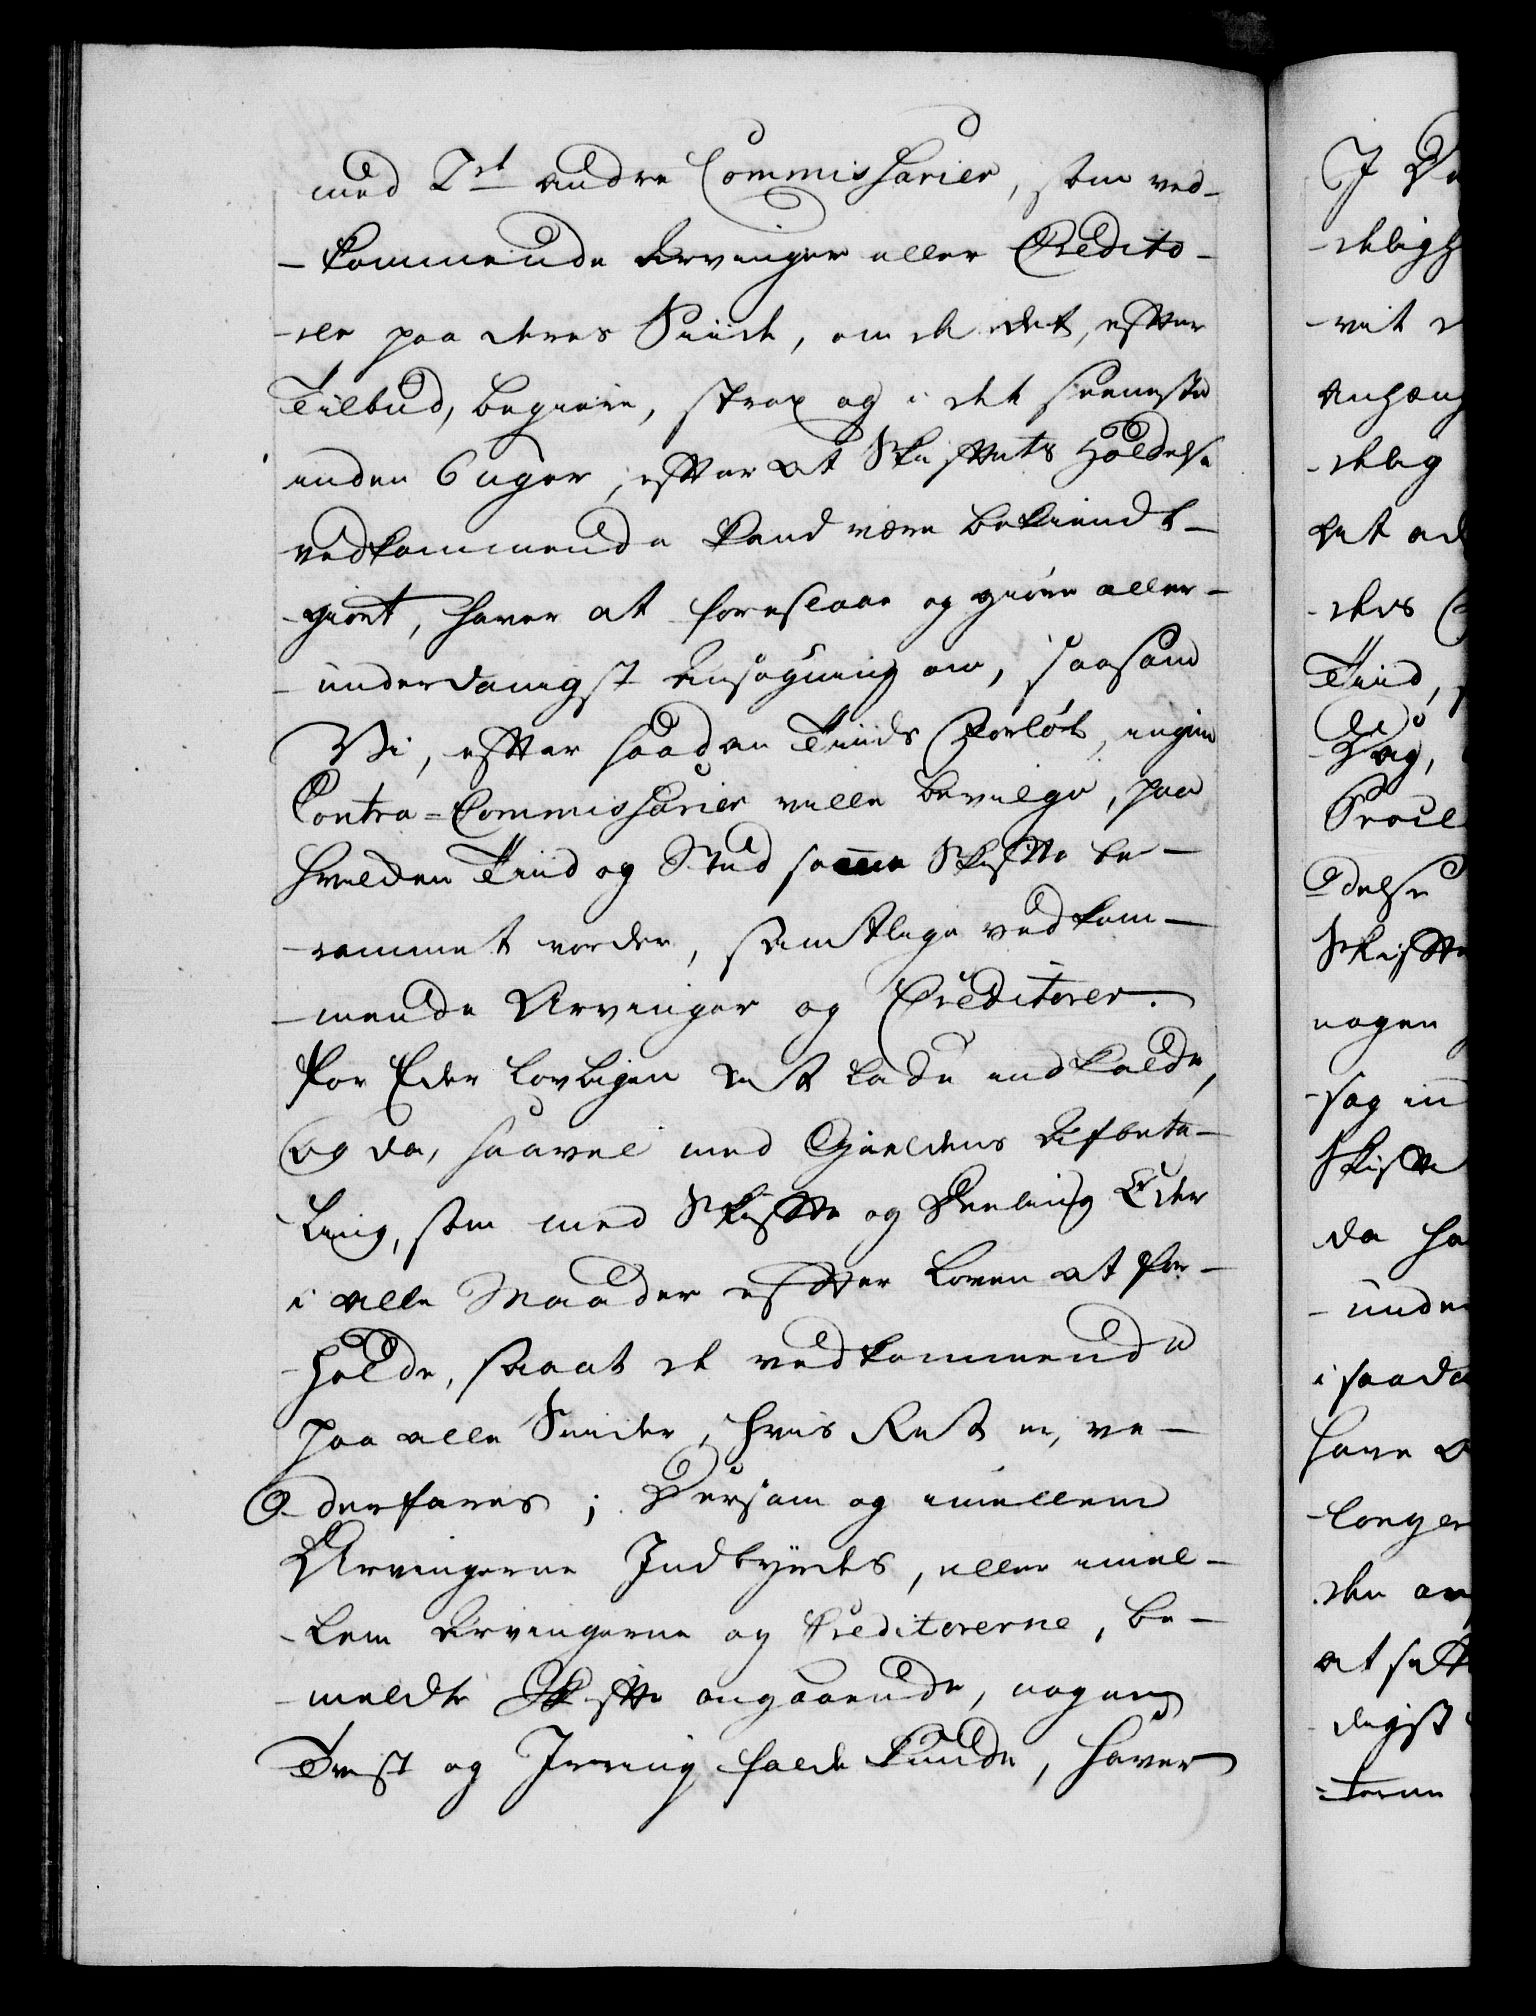 med 2de andre Commissarier, som ved-
-kommende Arvinger eller Credito-
-rer paa deres Siide, om de det, efter
Tilbud, begiere, strax og i det seeneste
inden 6 uger, efter at Skiftets Holdelse
vedkommende kand være bekiendt-
-giort, haver at foreslaae og giøre aller-
-underdanigst Ansøgning om, saasom
Vi, efter saadan Tiids Forløb, ingen
Contra-Commissarier ville bevilge, paa
hvilken Tiid og Stæd samme Skifte be-
-rammet vorder, samtlige vedkom-
-mende Arvinger og Creditorer
for Eder lovligen at lade indkalde,
og da, saavel med Gieldens Afbeta-
ling, som med Skifte og Deeling Eder
i alle Maader efter Loven at for-
-holde, saa at de vedkommende
paa alle Siider, hvis Ret er, ve-
-derfares; Dersom og imellem
Arvingerne Indbyrdes, eller imel-
-lem Arvingerne og Creditorerne, be-
-meldte Skifte angaaende, nogen
Tvist og Irring falde kunde, haver
I
-delig
-vit
anhæng
-delig
at
-des
Tiid,
Dag,

-delse
Skifte
nogen
-sag
Skifte
da ha
-unde
i saada
have
længer
den
at sætt
-digst
-terne